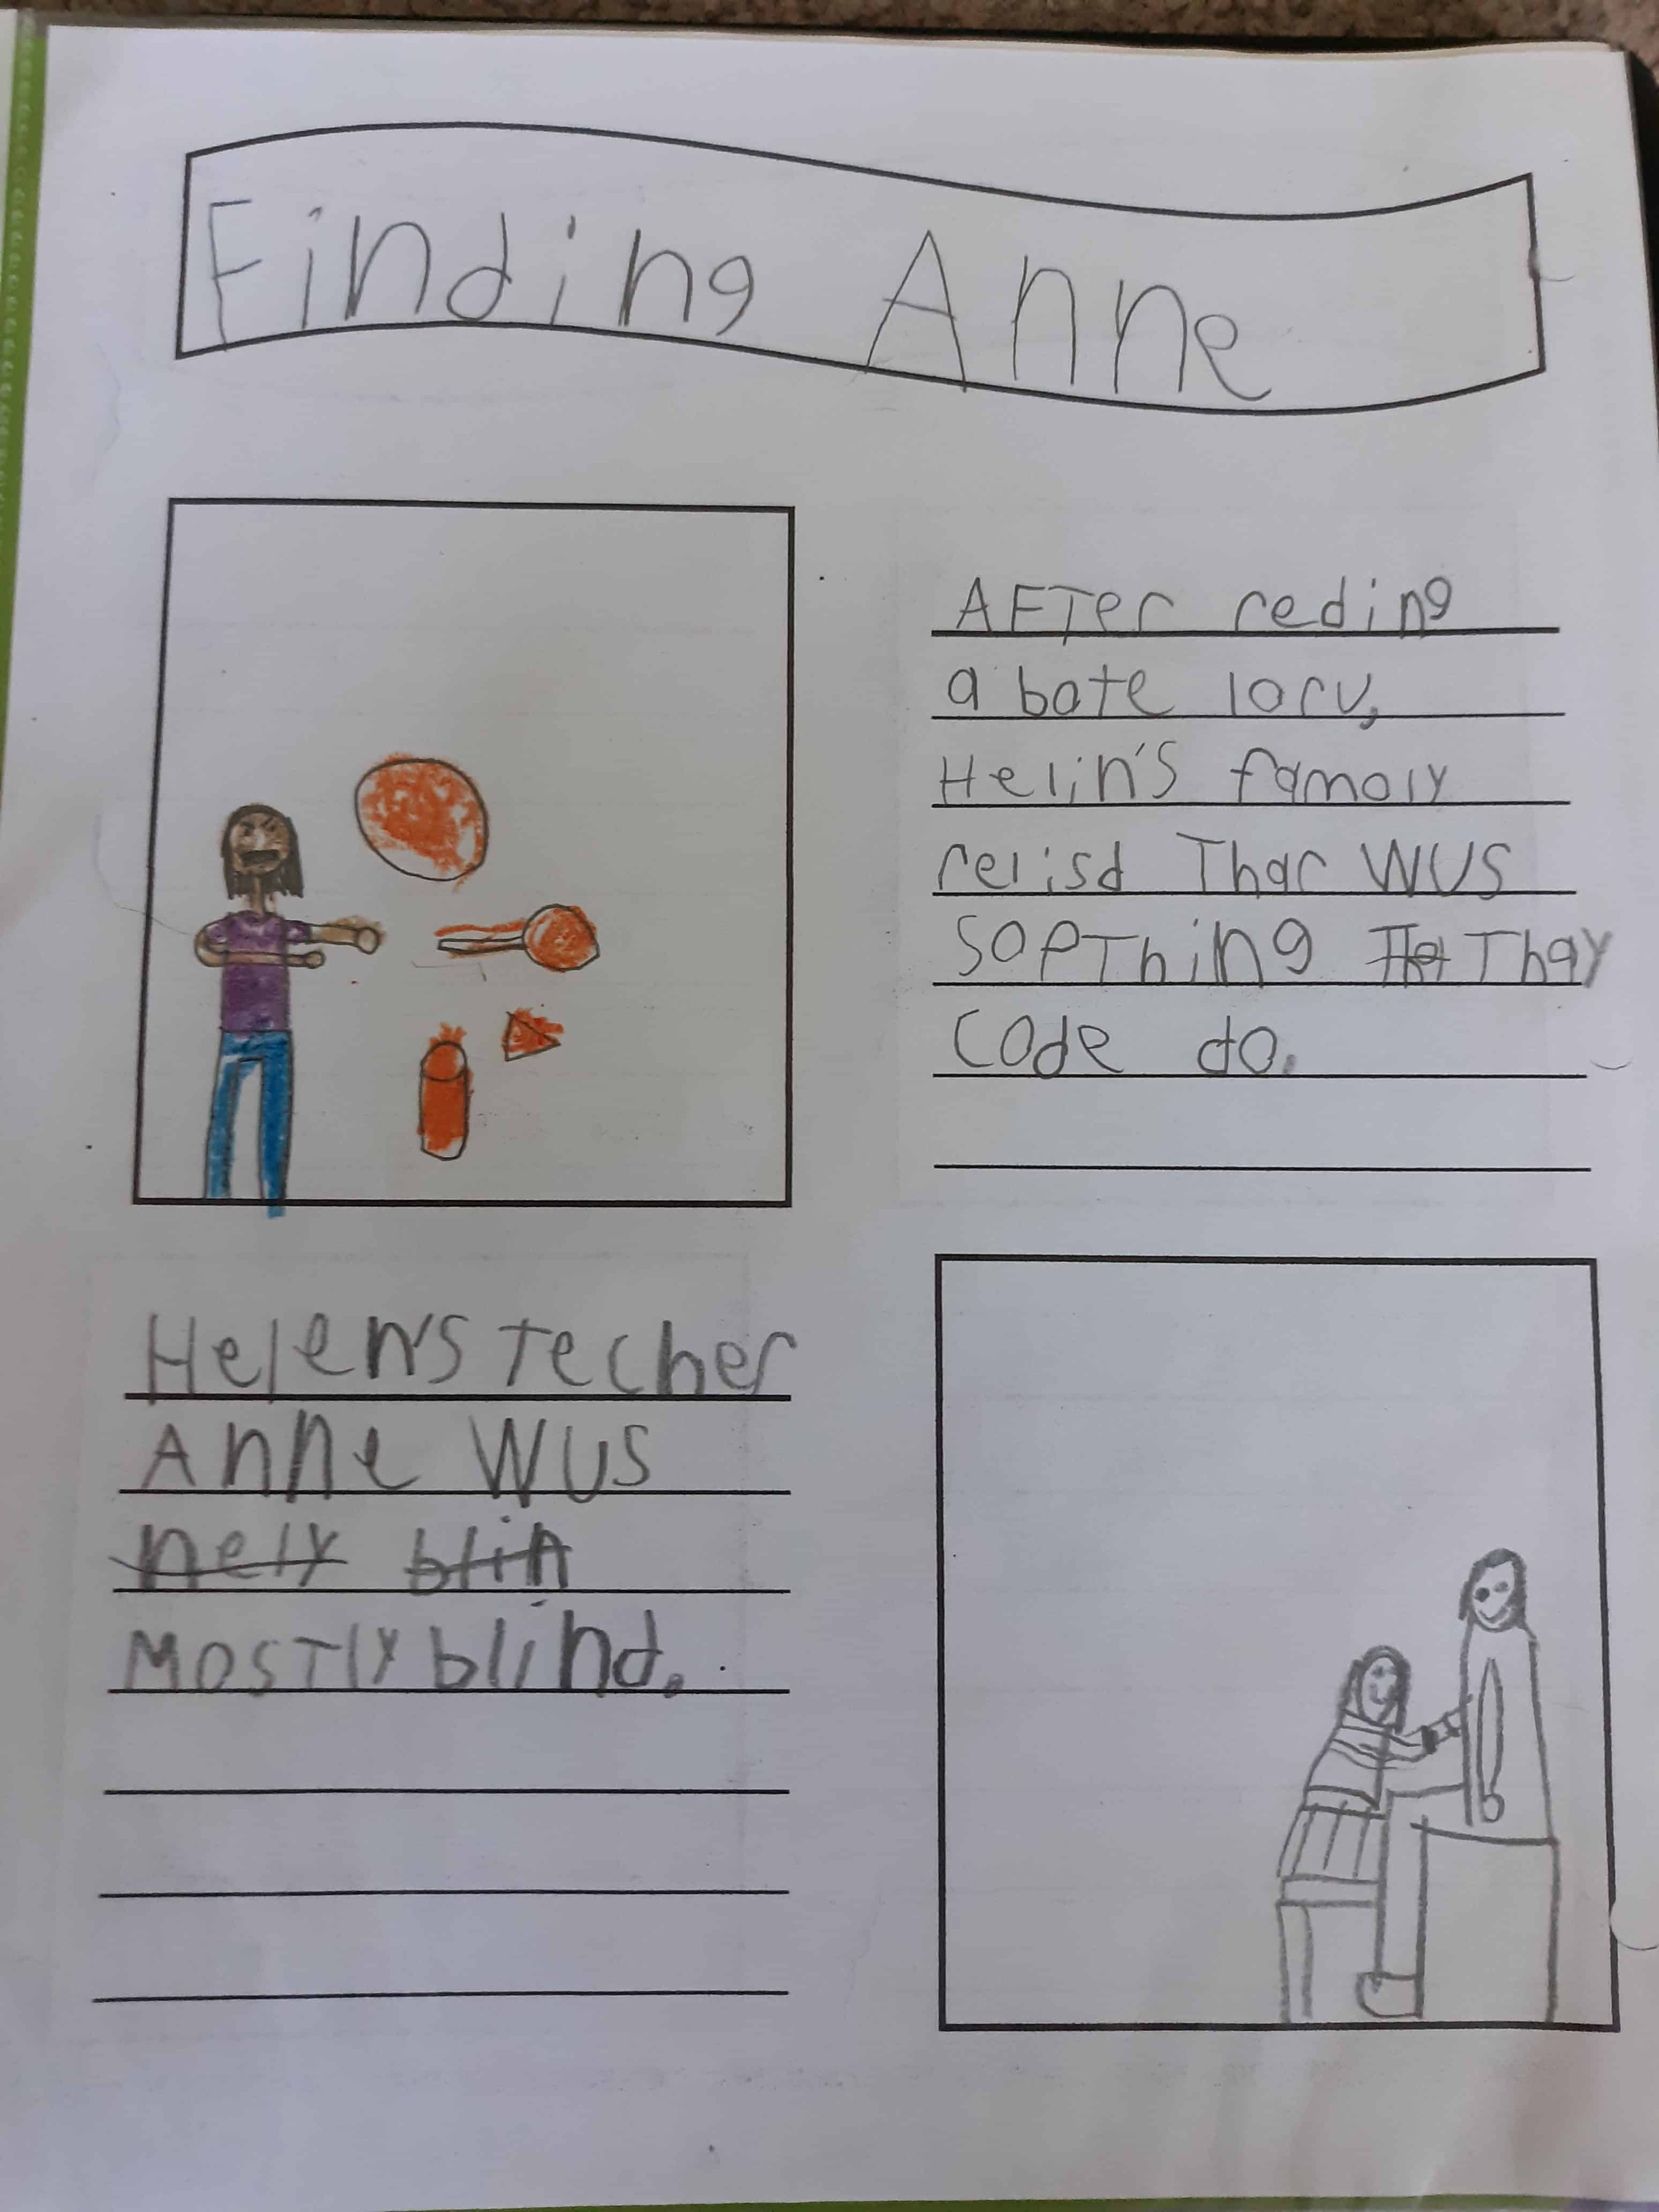 Finding Anne
AFTer reding
a bate lorv,
Helin's famoly
relisd Thar WUS
SoPThing The Thay
Code do.
Helen's Techer
Anne WUS
nely blin
MOSTly blind.